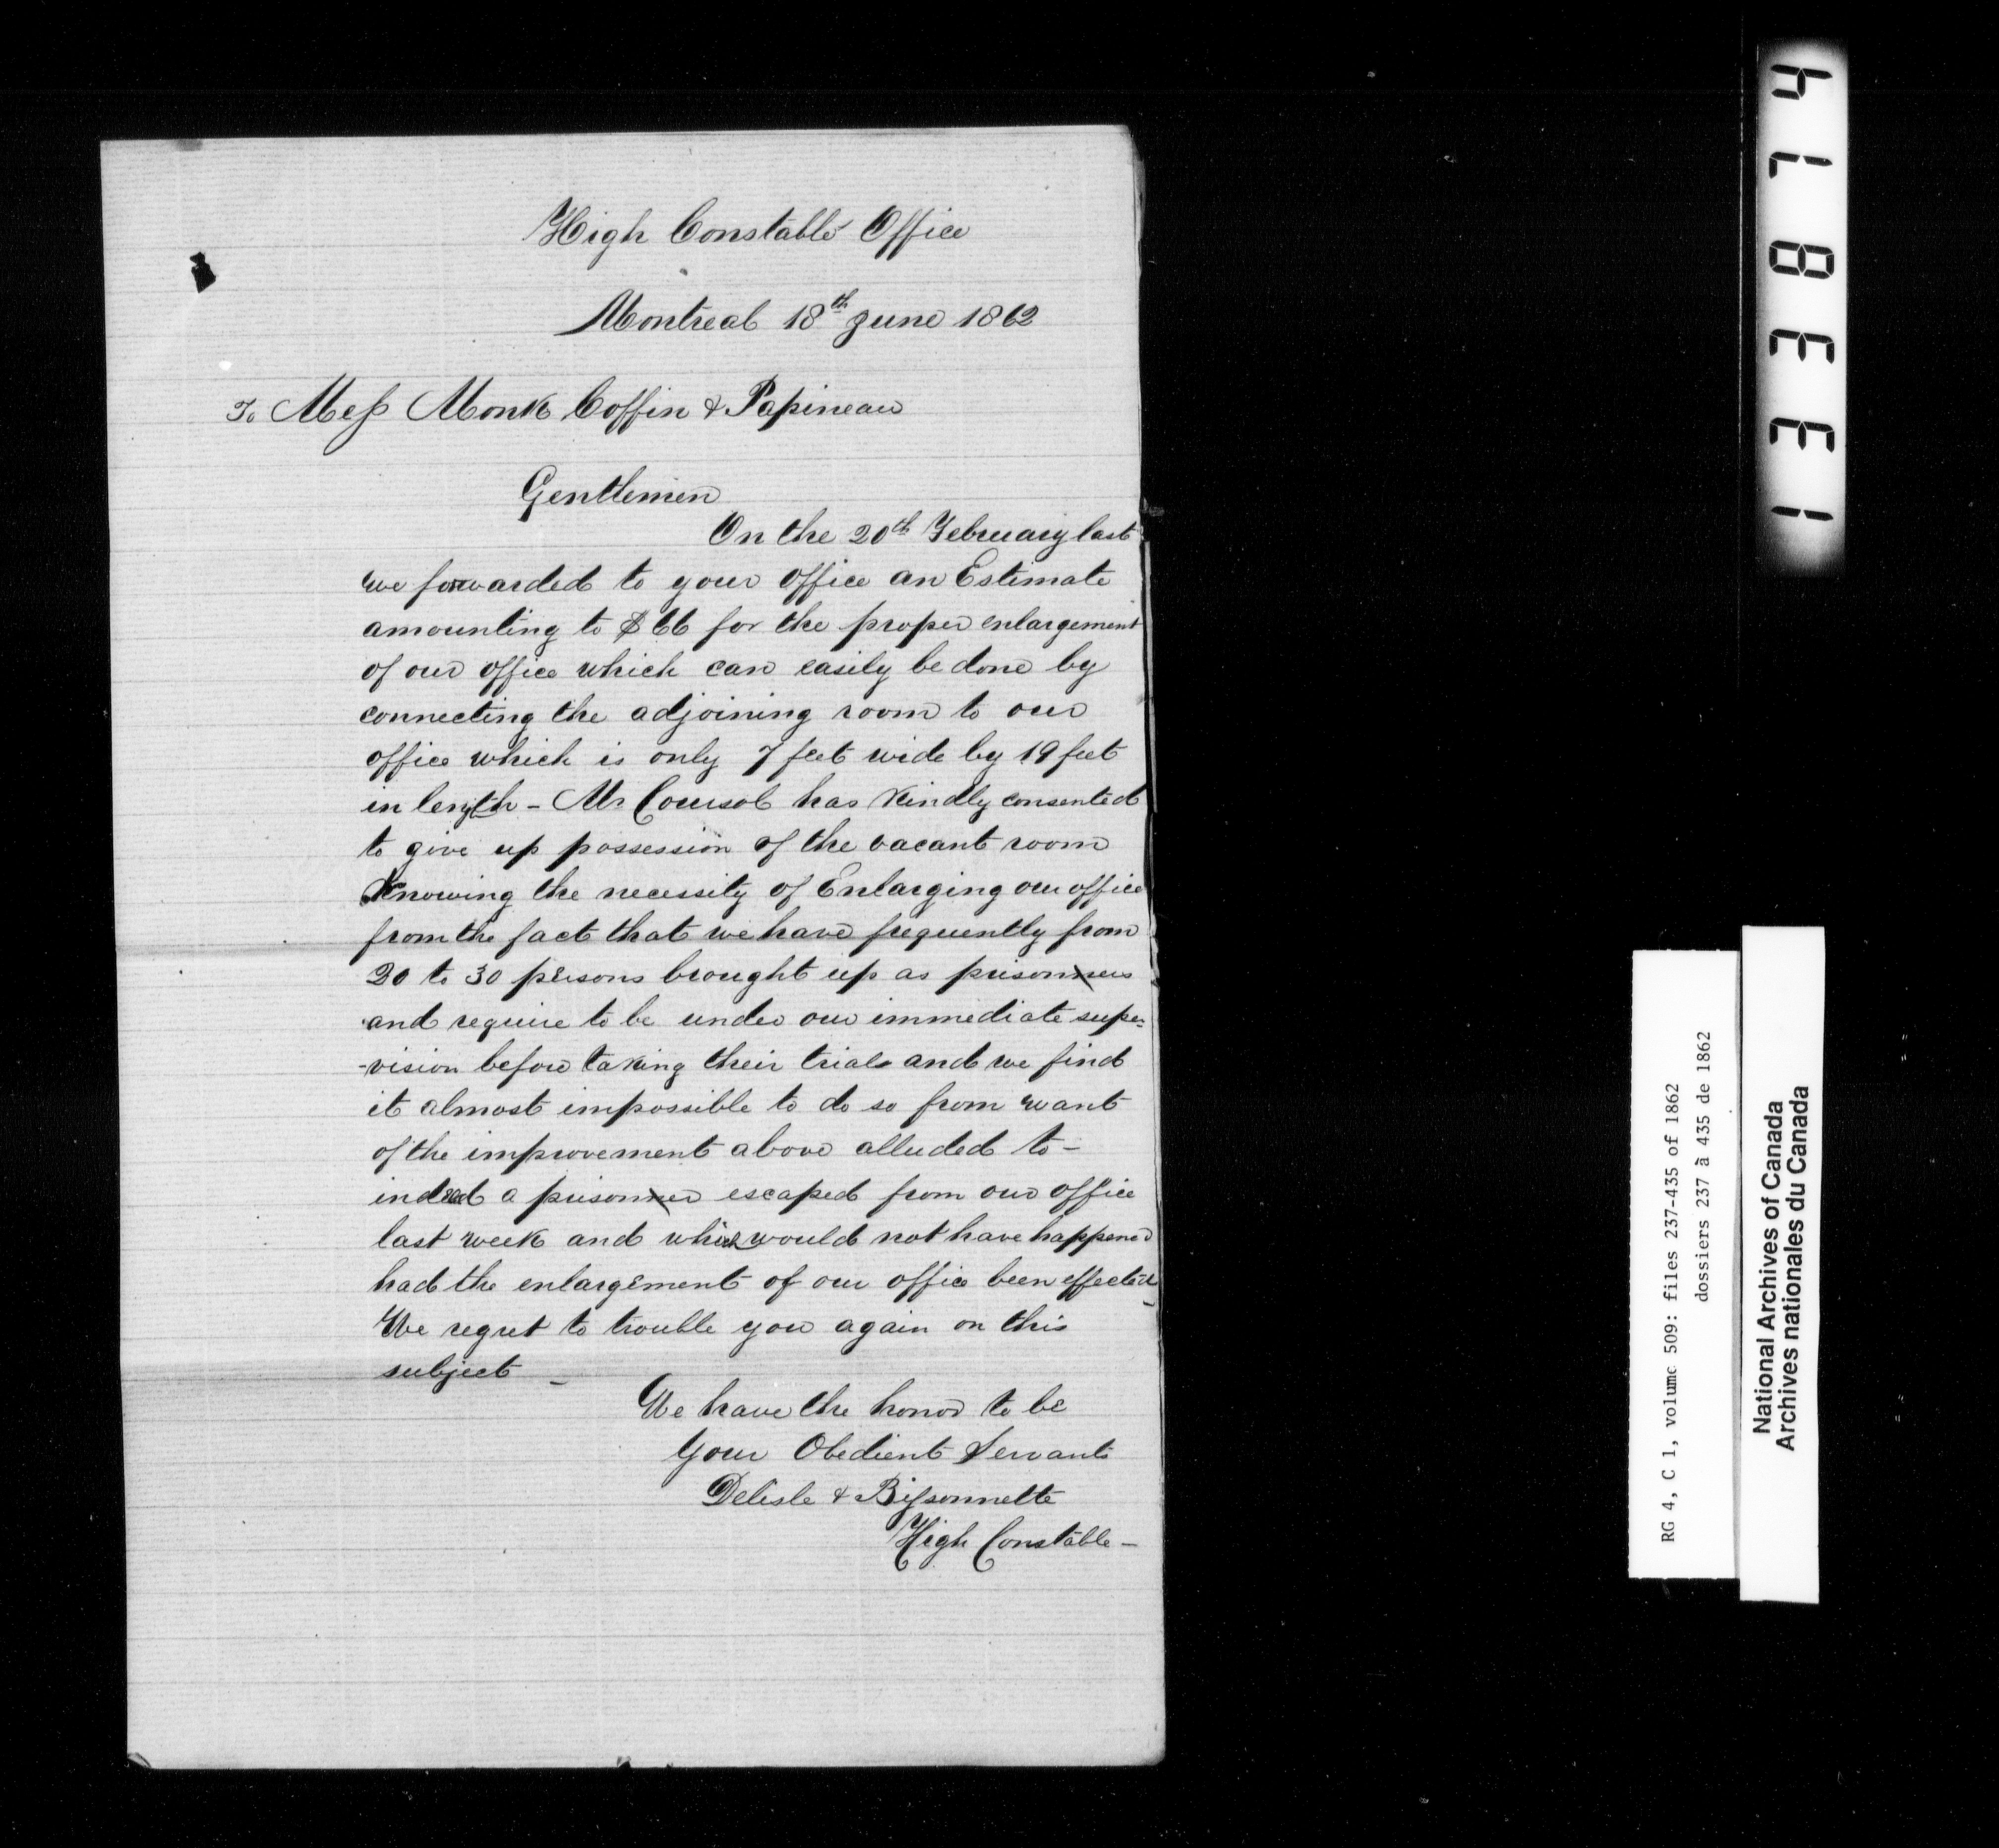 High Constable Office
Montreal 18th June 1862
To Mess Monk Coffin & Papineau
Gentlemen
On the 20th February last
we forwarded to your office an Estimate
amounting to $66 for the proper enlargement
of our office which can easily be done by
connecting the adjoining room to our
office which is only 7 feet wide by 19 feet
in length - Mr Coursol has kindly consented
to give up possession of the vacant room
Knowing the necessity of Enlarging our office
from the fact that we have frequently from
20 to 30 persons brought up as prisoners
and require to be under our immediate super-
-vision before taking their trials and we find
it almost impossible to do so from want
of the improvement above alluded to -
indeed a prisoner escaped from our office
last week and which would not have happened
had the enlargement of our office been effected
We regret to trouble you again on this
subject -
We have the honor to be
Your Obedient Servants
Delisle & Bissonnette
High Constable -
133874
RG 4, C 1, volume 509: files 237-435 of 1862
dossiers 237 à 435 de 1862
National Archives of Canada
Archives nationales du Canada